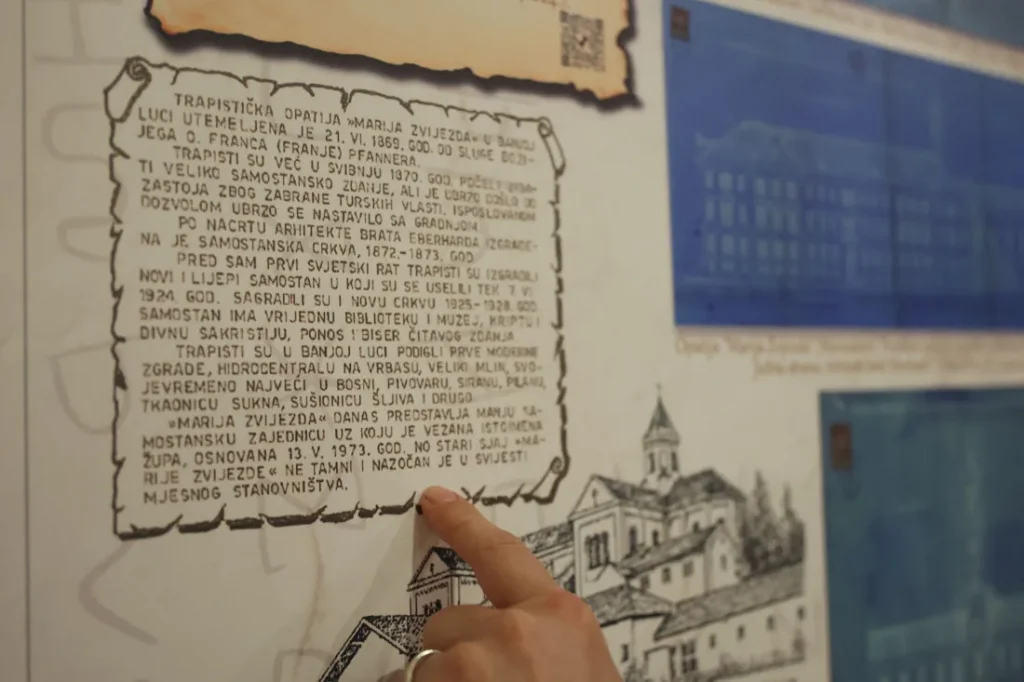 TRAPISTIČKA OPATIJA »MARIJA ZVIJEZDA« U BANJOJ
LUCI UTEMELJENA JE 21. VI. 1869. GOD. OD SLUGE BOŽI-
JEGA O. FRANCA (FRANJE) PFANNERA.
TRAPISTI SU VEĆ U SVIBNJU 1870. GOD. POČELI
TI VELIKO SAMOSTANSKO ZDANJE, ALI JE UBRZO DOŠLO DO
ZASTOJA ZBOG ZABRANE TURSKIH VLASTI. ISPOSLOVANOM
DOZVOLOM UBRZO SE NASTAVILO SA GRADNJOM.
PO NACRTU ARHITEKTE BRATA EBERHARDA IZGRAĐE-
NA JE SAMOSTANSKA CRKVA, 1872.-1873. GOD.
PRED SAM PRVI SVJETSKI RAT TRAPISTI SU IZGRADILI
NOVI I LIJEPI SAMOSTAN U KOJI SU SE USELILI TEK 7. VI.
1924. GOD. SAGRADILI SU I NOVU CRKVU 1925-1928. GOD.
SAMOSTAN IMA VRIJEDNU BIBLIOTEKU I MUZEJ, KRIPTU I
DIVNU SAKRISTIJU, PONOS I BISER ČITAVOG ZDANJA.
TRAPISTI SU U BANJOJ LUCI PODIGLI PRVE MODERNE
ZGRADE, HIDROCENTRALU NA VRBASU, VELIKI MLIN, SVO-
JEVREMENO NAJVEĆI U BOSNI, PIVOVARU, SIRANU, PILANU,
TKAONICU SUKNA, SUŠIONICU ŠLJIVA I DRUGO.
»MARIJA ZVIJEZDA« DANAS PREDSTAVLJA MANJU SA-
MOSTANSKU ZAJEDNICU UZ KOJU JE VEZANA ISTOIMENA
ŽUPA, OSNOVANA 13. V. 1973. GOD. NO STARI SJAJ »MA-
RIJE ZVIJEZDE« NE TAMNI I NAZOČAN JE U SVIJESTI
MJESNOG STANOVNIŠTVA.